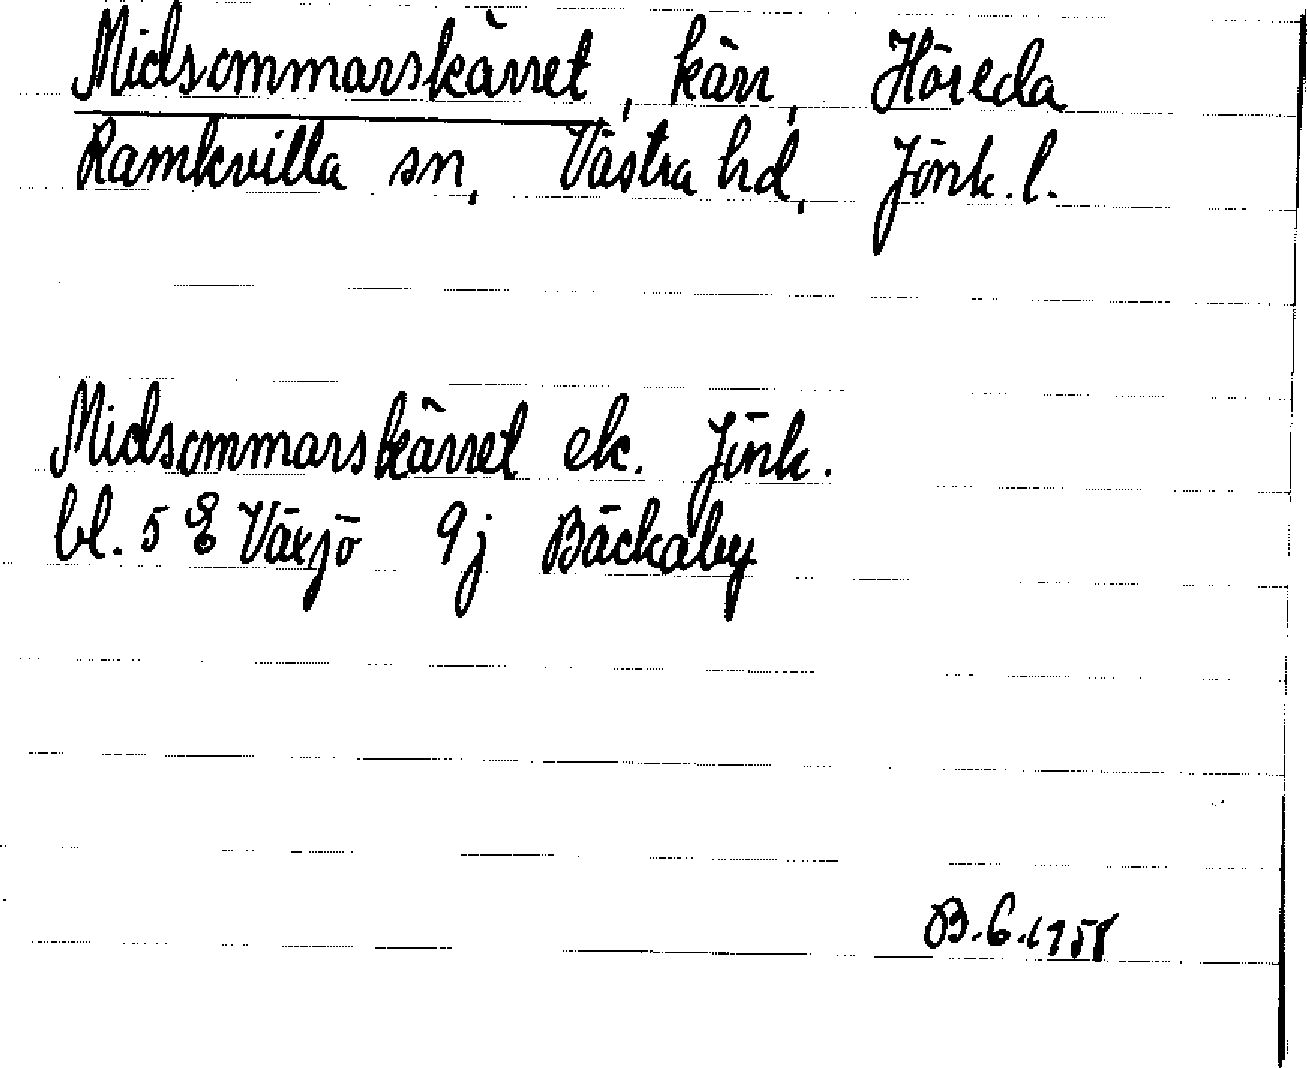 Midsommarskärret, kärr, Höreda
Ramkvilla sn, Västra hd, Jönk. l.
Midsommarskärret ek. Jönk.
bl. 5 E Växjö 9j Bäckaby
B.G. 1958